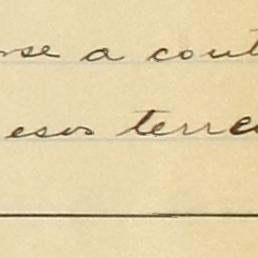 se a cont
esos terre